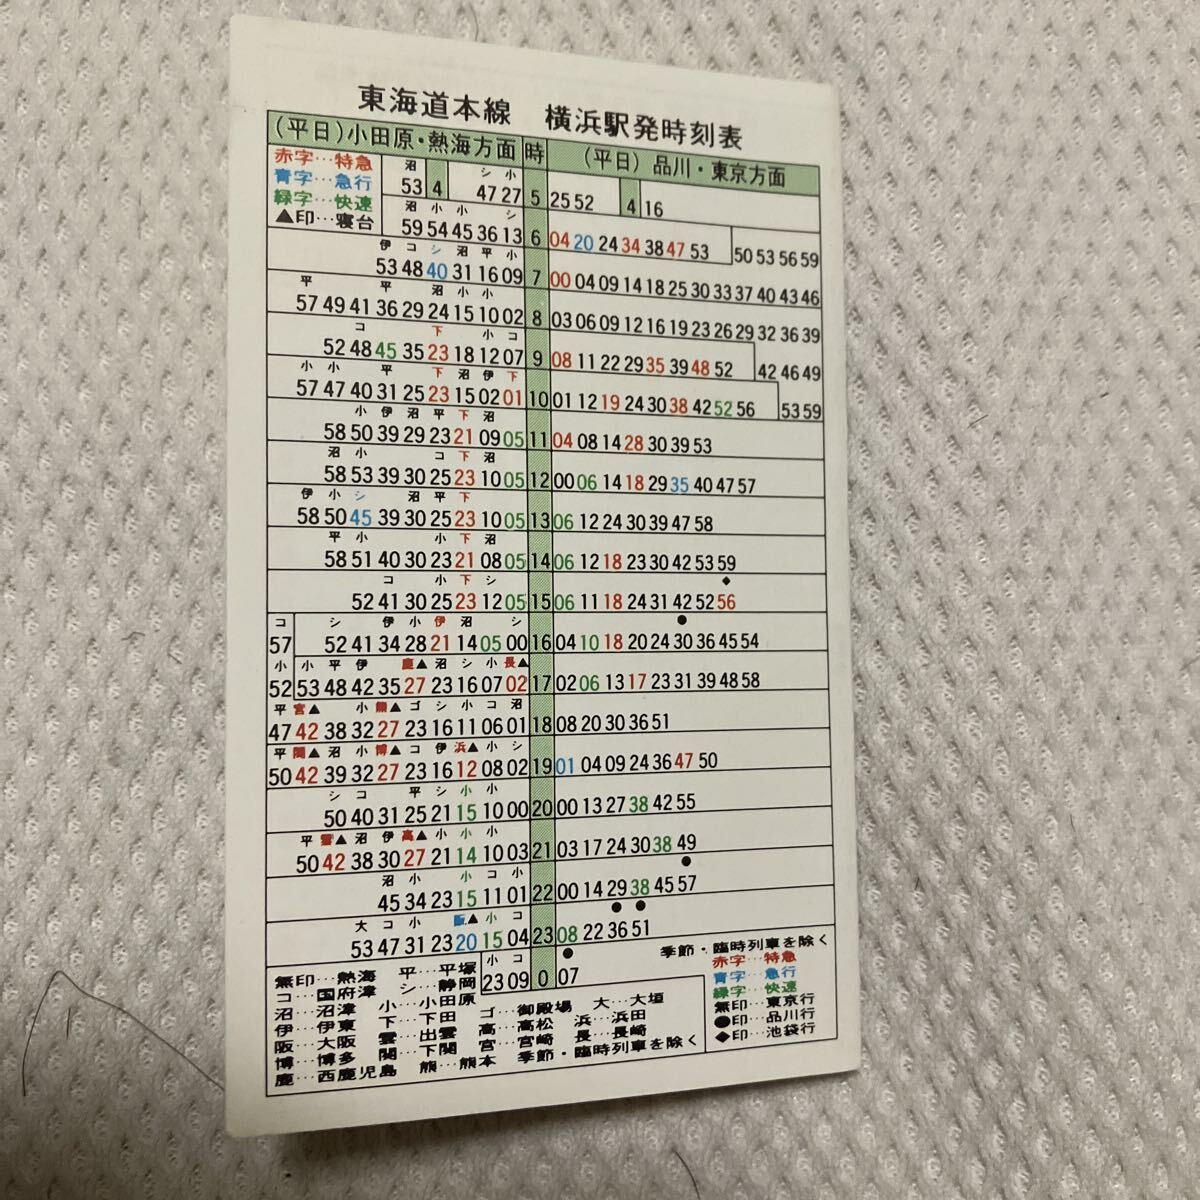 東海道本線 横浜駅発時刻表
(平日)小田原・熱海方面 時 (平日) 品川・東京方面
赤字…特急
青字…急行
緑字…快速
▲印…寝台
沼 シ 小
53 4 47 27 5 25 52 4 16
沼 小 小 シ
59 54 45 36 13 6 04 20 24 34 38 47 53 50 53 56 59
伊 コ シ 沼 平 小
53 48 40 31 16 09 7 00 04 09 14 18 25 30 33 37 40 43 46
平 平 沼 小 小
57 49 41 36 29 24 15 10 02 8 03 06 09 12 16 19 23 26 29 32 36 39
コ 下 小 コ
52 48 45 35 23 18 12 07 9 08 11 22 29 35 39 48 52 42 46 49
小 小 平 下 沼 伊 下
57 47 40 31 25 23 15 02 01 10 01 12 19 24 30 38 42 52 56 53 59
小 伊 沼 平 下 沼
58 50 39 29 23 21 09 05 11 04 08 14 28 30 39 53
沼 小 コ 下 沼
58 53 39 30 25 23 10 05 12 00 06 14 18 29 35 40 47 57
伊 小 シ 沼 平 下
58 50 45 39 30 25 23 10 05 13 06 12 24 30 39 47 58
平 小 小 下 沼
58 51 40 30 23 21 08 05 14 06 12 18 23 30 42 53 59
コ 小 下 シ ◆
52 41 30 25 23 12 05 15 06 11 18 24 31 42 52 56
コ シ 伊 小 伊 沼 シ ●
57 52 41 34 28 21 14 05 00 16 04 10 18 20 24 30 36 45 54
小 小 平 伊 鹿▲ 沼 シ 小 長▲
52 53 48 42 35 27 23 16 07 02 17 02 06 13 17 23 31 39 48 58
平 宮▲ 小 熊▲ ゴ シ 小 コ 沼
47 42 38 32 27 23 16 11 06 01 18 08 20 30 36 51
平 関▲ 沼 小 博▲ コ 伊 浜▲ 小 シ
50 42 39 32 27 23 16 12 08 02 19 01 04 09 24 36 47 50
シ コ 平 シ 小 小
50 40 31 25 21 15 10 00 20 00 13 27 38 42 55
平 雲▲ 沼 伊 高▲ 小 小 小
50 42 38 30 27 21 14 10 03 21 03 17 24 30 38 49
沼 小 小 コ 小 ●
45 34 23 15 11 01 22 00 14 29 38 45 57
大 コ 小 阪▲ 小 コ ● ●
53 47 31 23 20 15 04 23 08 22 36 51
小 コ ●
23 09 0 07
無印…熱海 平…平塚
コ…国府津 シ…静岡
沼…沼津 小…小田原 ゴ…御殿場 大…大垣
伊…伊東 下…下田 高…高松 浜…浜田
阪…大阪 雲…出雲 宮…宮崎 長…長崎
博…博多 関…下関 季節・臨時列車を除く
鹿…西鹿児島 熊…熊本
季節・臨時列車を除く
赤字…特急
青字…急行
緑字…快速
無印…東京行
●印…品川行
◆印…池袋行